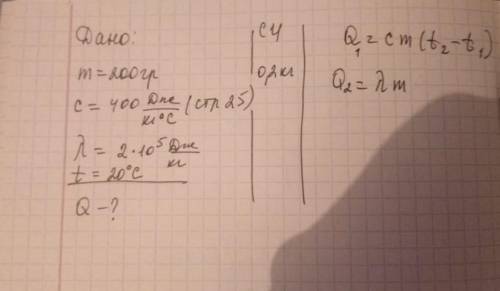 Дано:
m=200гр
c=400 Дж/кг°C (стр 25)
λ=2·10⁵ Дж/кг
t=20°C
Q-?
СИ
0,2кг
Q₁=cm(t₂-t₁)
Q₂=λm